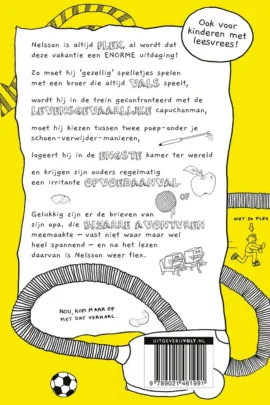 Ook voor
kinderen met
leesvrees!
Nelsson is altijd FLEX, al wordt dat
deze vakantie een ENORME uitdaging!
Zo moet hij 'gezellig' spelletjes spelen
met een broer die altijd VALS speelt,
wordt hij in de trein geconfronteerd met de
LEVENSGEVAARLIJKE capuchonman,
moet hij kiezen tussen twee poep-onder je
schoen-verwijder-manieren,
logeert hij in de ENGSTE kamer ter wereld
en krijgen zijn ouders regelmatig
een irritante OPVOEDAANVAL.
Gelukkig zijn er de brieven van
zijn opa, die BIZARRE AVONTUREN
meemaakte – vast niet waar maar wel
heel spannend – en na het lezen
daarvan is Nelsson weer flex.
NIET ZO FLEX
NOU, KOM MAAR OP
MET DAT VERHAAL.
UITGEVERIJVOLT.NL
9 789021 461991